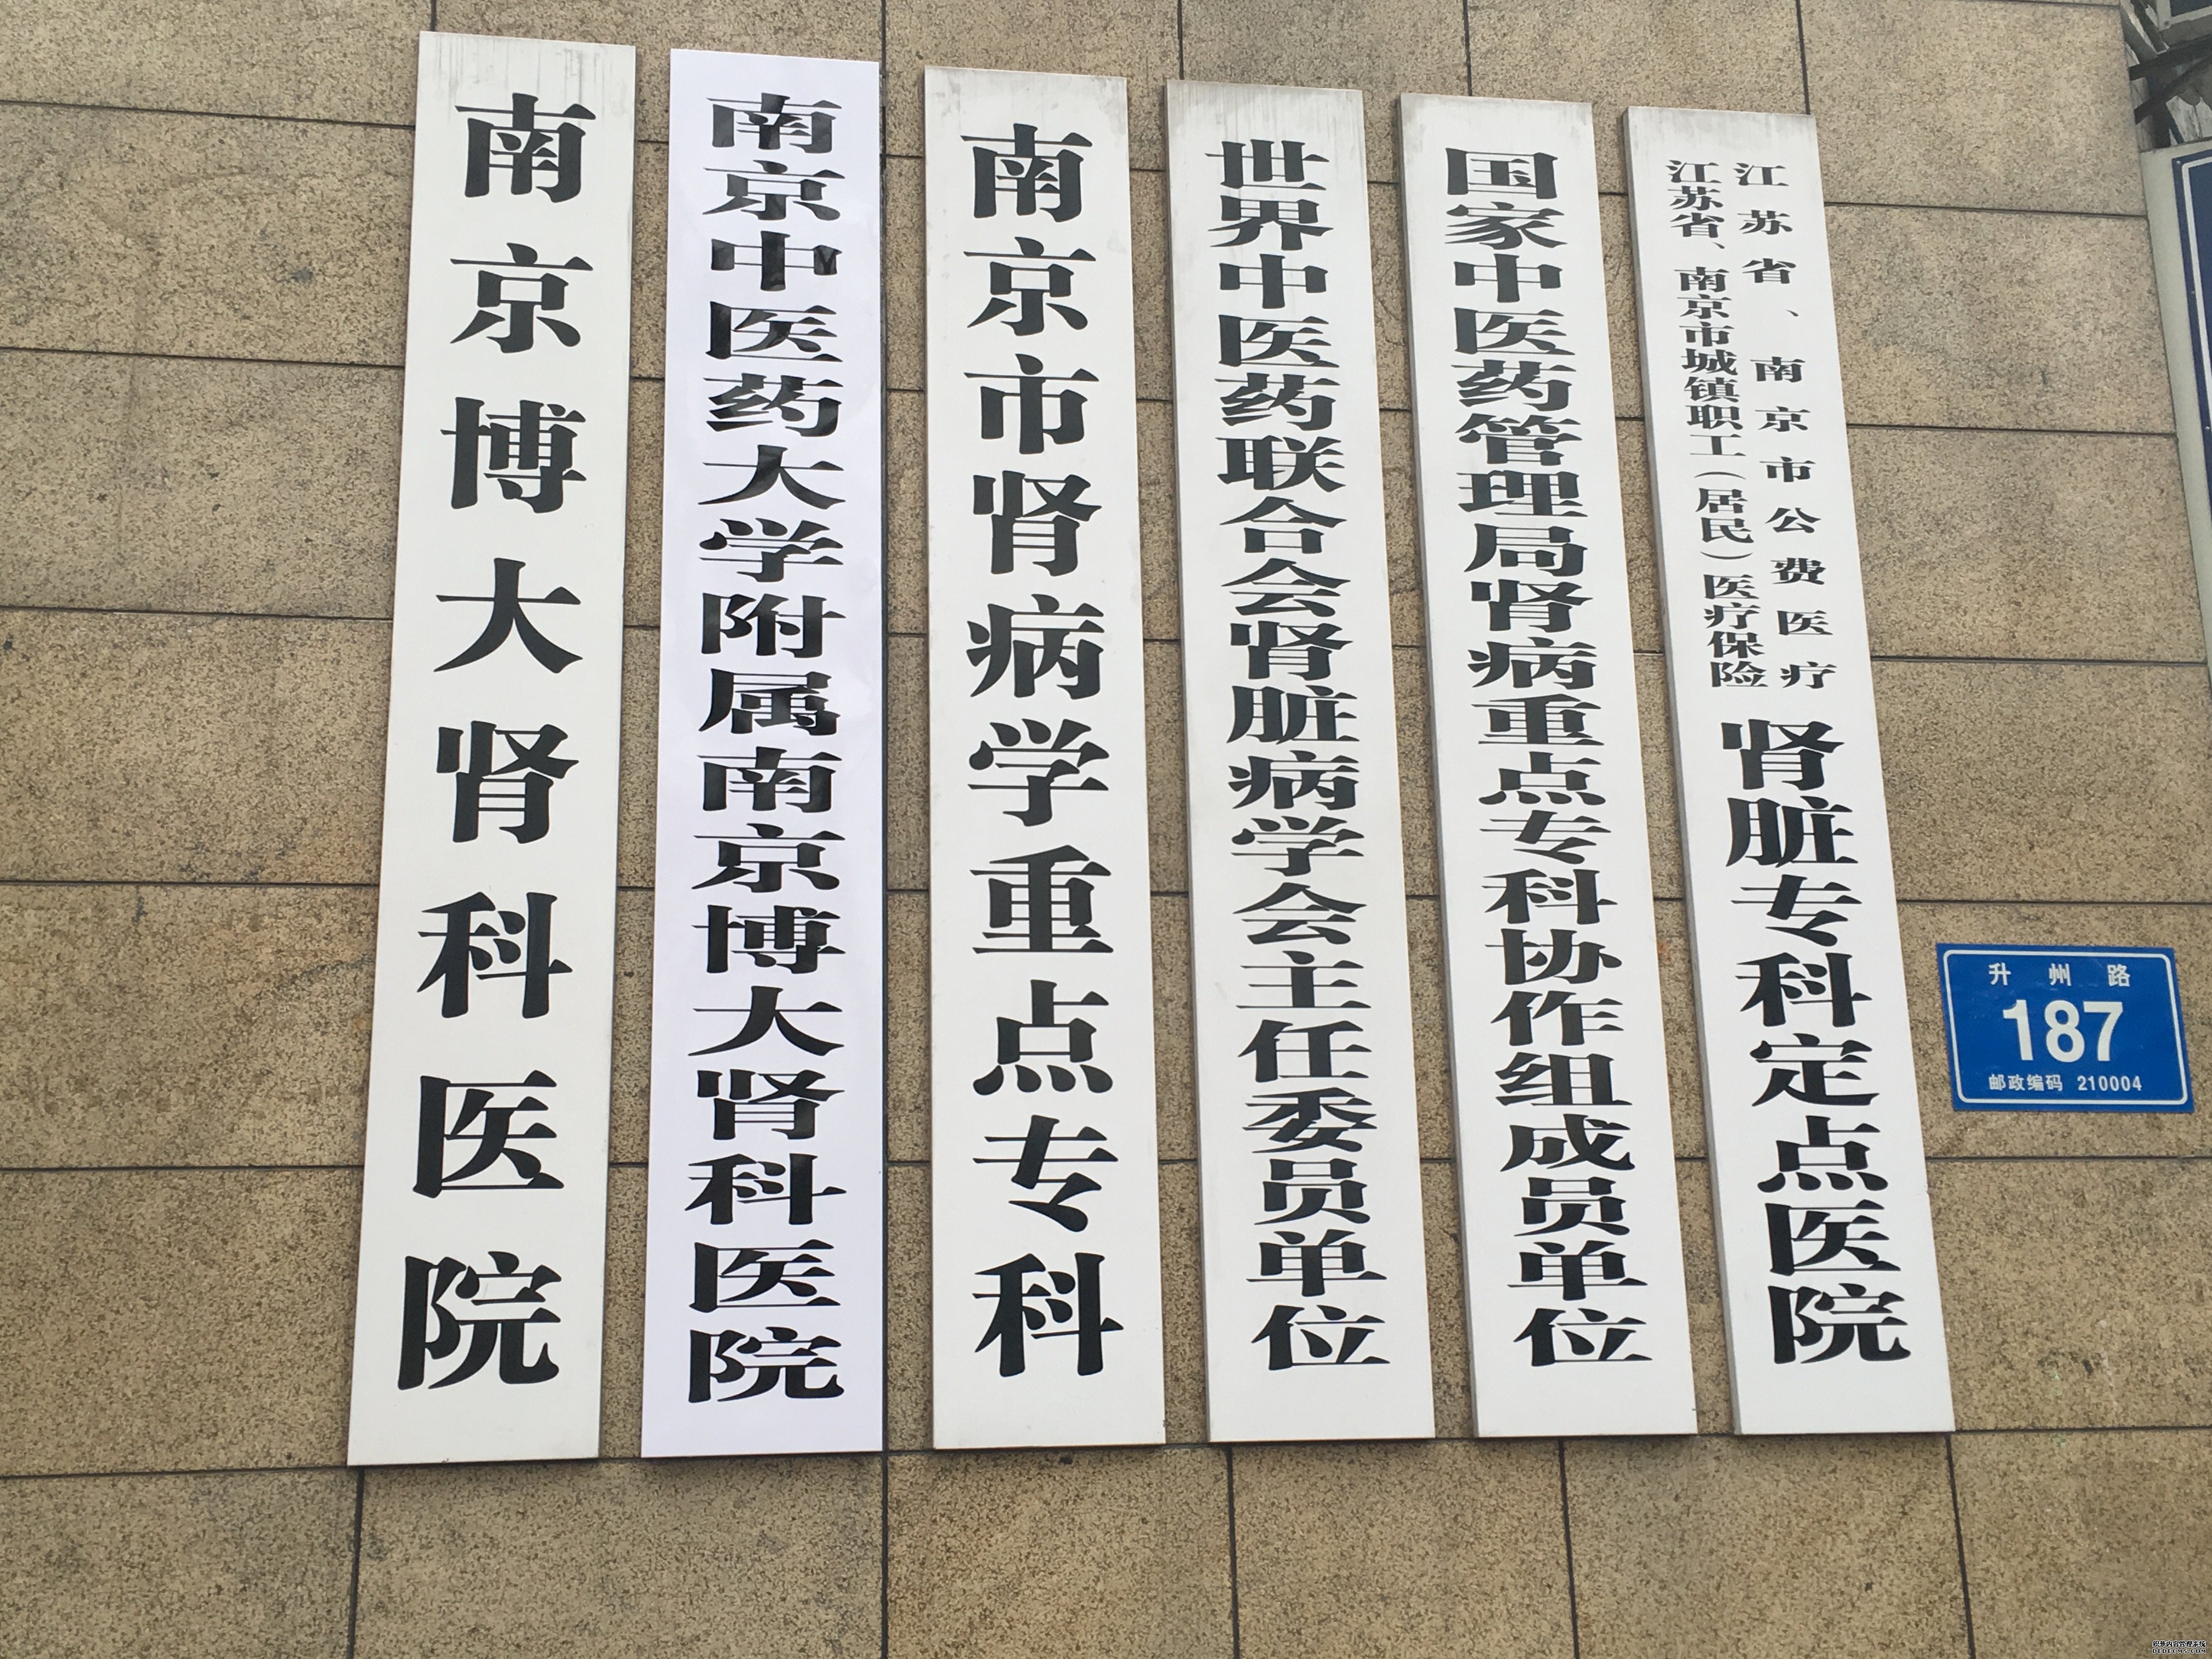 南京博大肾科医院
南京中医药大学附属南京博大肾科医院
南京市肾病学重点专科
世界中医药联合会肾脏病学会主任委员单位
国家中医药管理局肾病重点专科协作组成员单位
江苏省、南京市公费医疗
江苏省、南京市城镇职工(居民)医疗保险
肾脏专科定点医院
升州路
187
邮政编码 210004
织梦内容管理系统
DEDECMS.COM